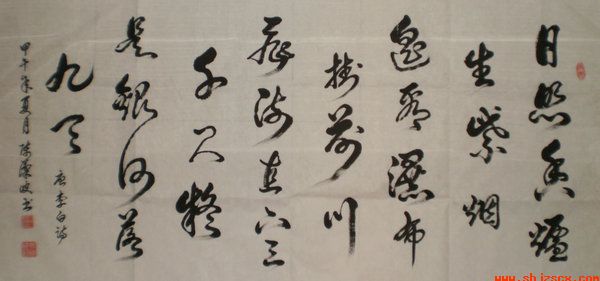 日照香爐
生紫烟
遥看瀑布
掛前川
飛流直下三
千尺疑
是銀河落
九天
唐李白詩
甲午年夏月 陈波书